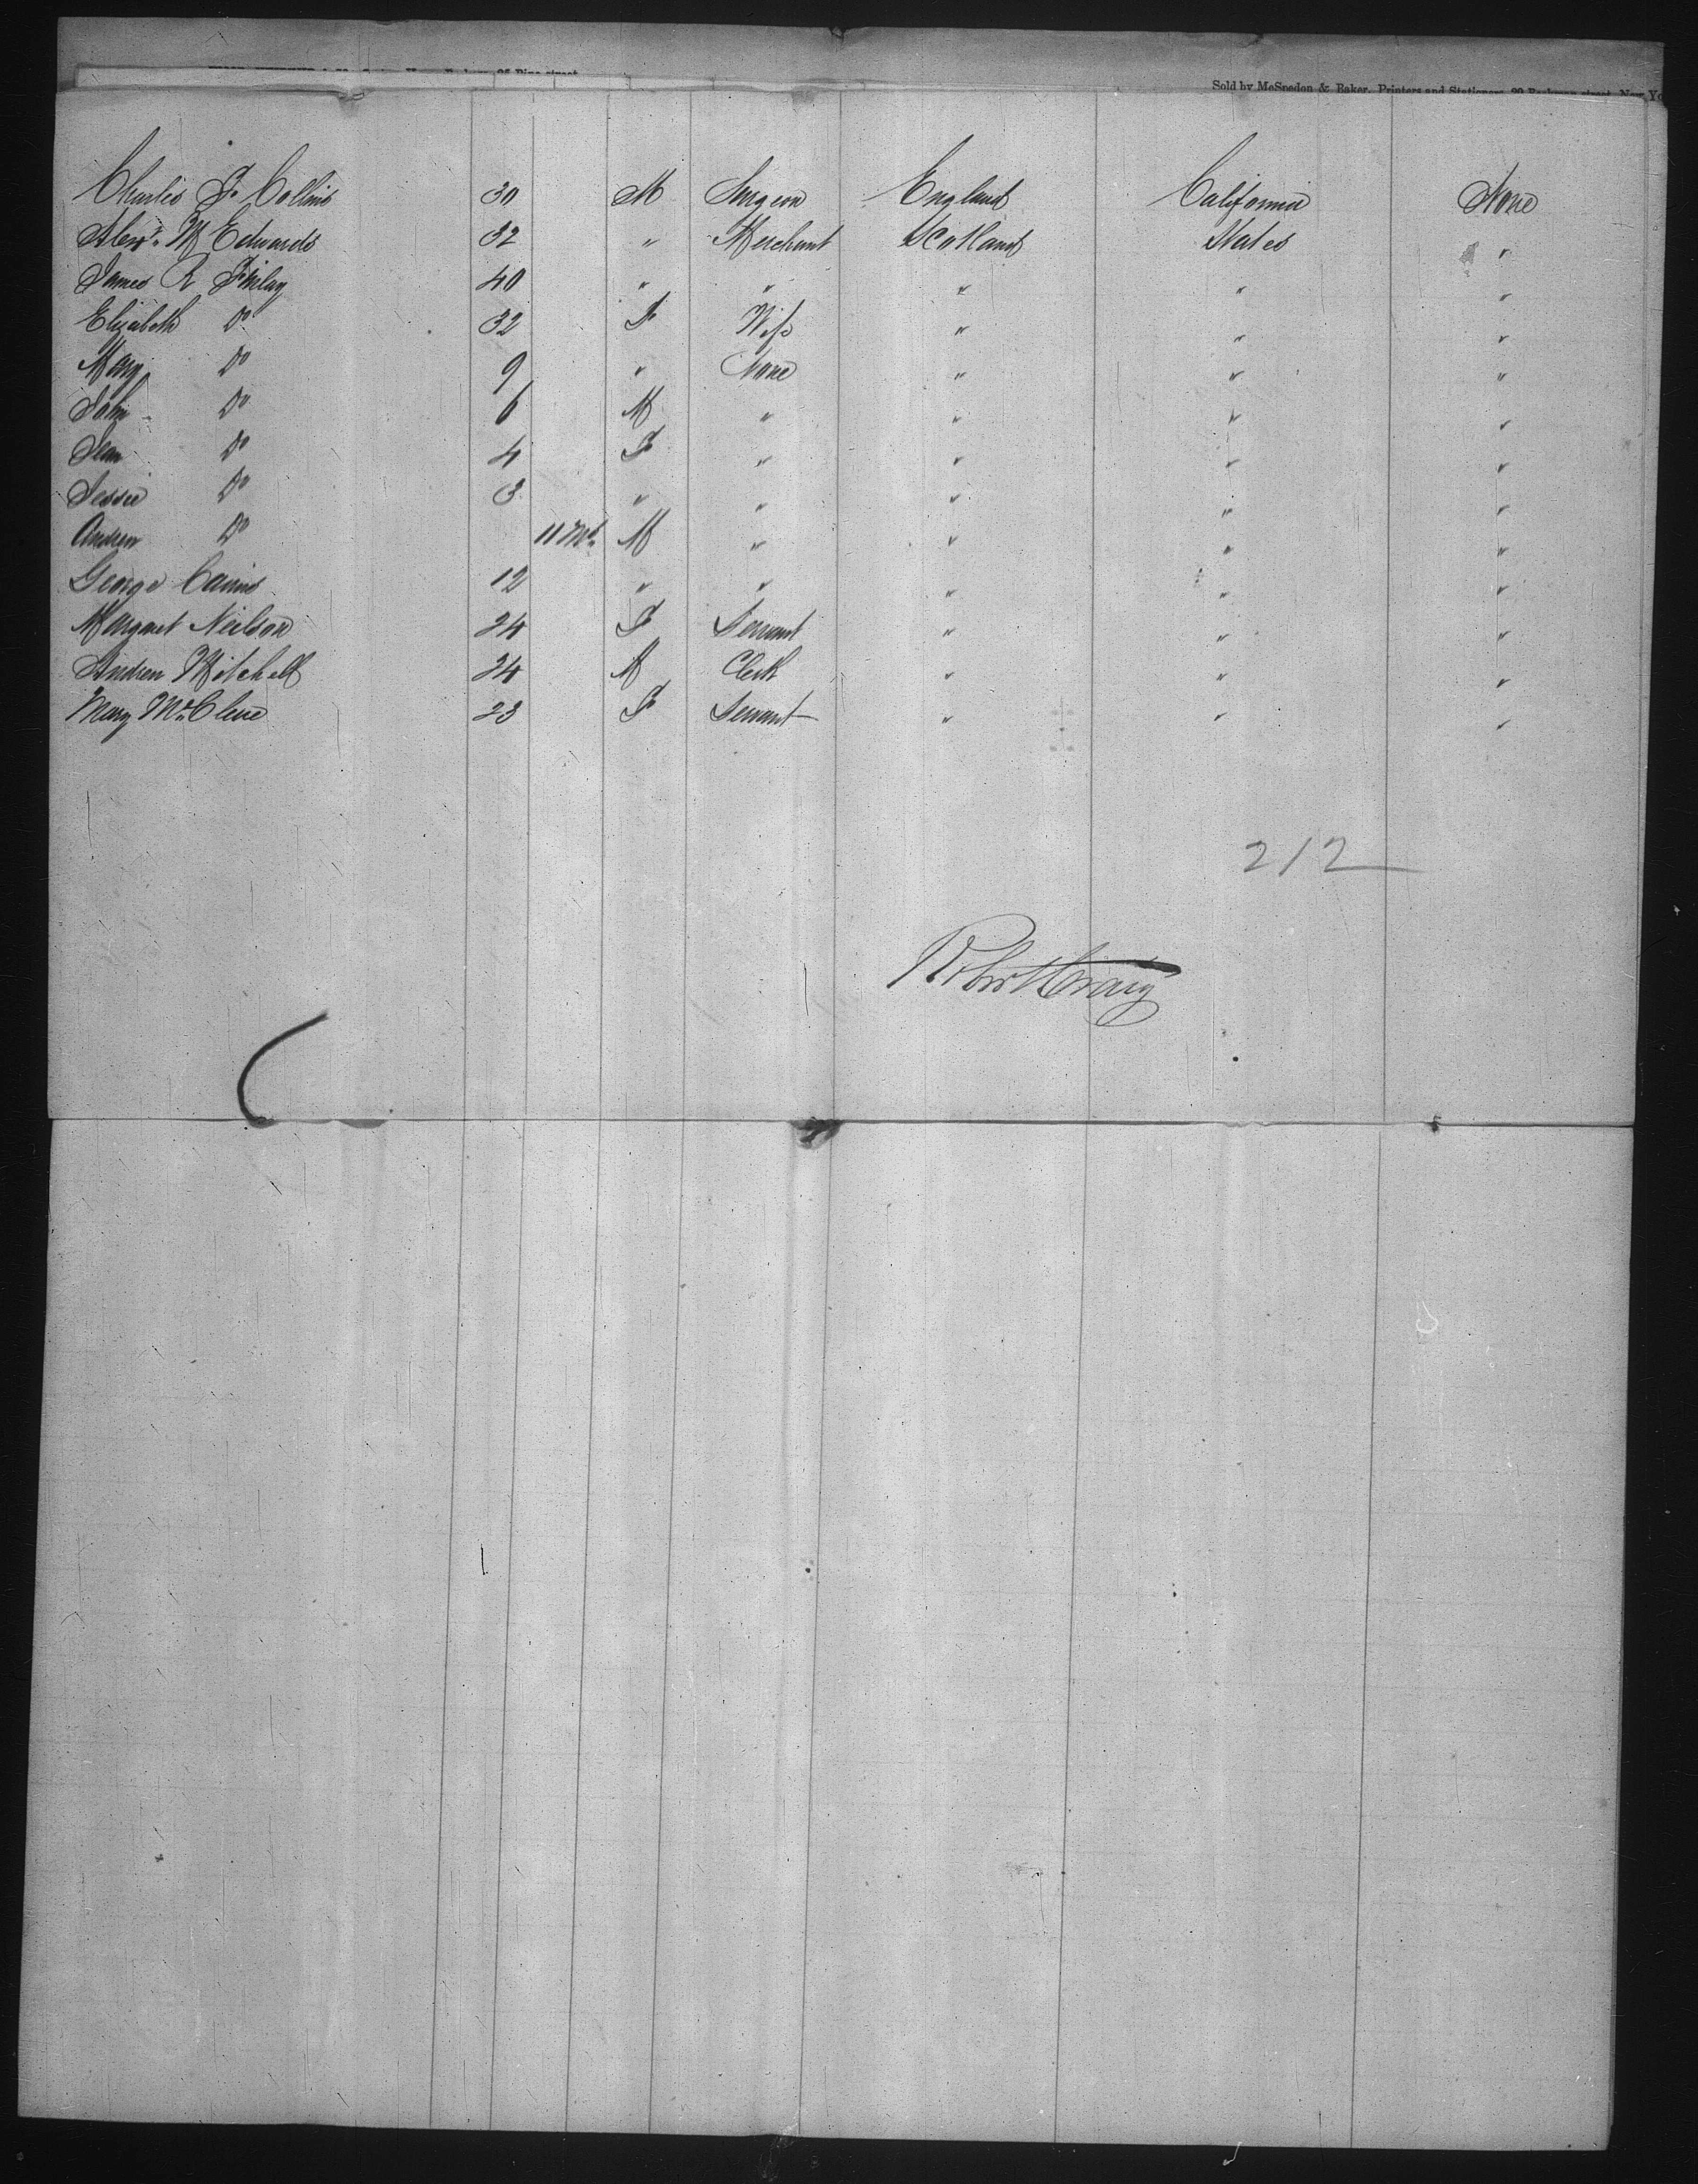 Sold by McSpedon & Baker, Printers and Stationers, 29 Beekman street, New Yo
Charles F. Collins 30 M Surgeon England California None
Alexr. M Edwards 32 " Merchant Scotland States "
James R Finlay 40 " " " " "
Elizabeth Do 32 F Wife " " "
Mary Do 9 " None " " "
John Do 6 M " " " "
Jean Do 4 F " " " "
Jessie Do 3 " " " " "
Andrew Do 11 Mos. M " " " "
George Cairns 12 " " " " "
Margaret Neilson 24 F Servant " " "
Andrew Mitchell 24 M Clerk " " "
Mary McClure 23 F Servant " " "
212
Robert Craig